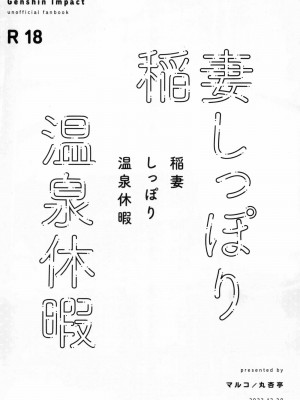 Genshin Impact
unofficial fanbook
R 18
稲妻しっぽり
温泉休暇
稲妻
しっぽり
温泉休暇
presented by
マルコ／丸杏亭